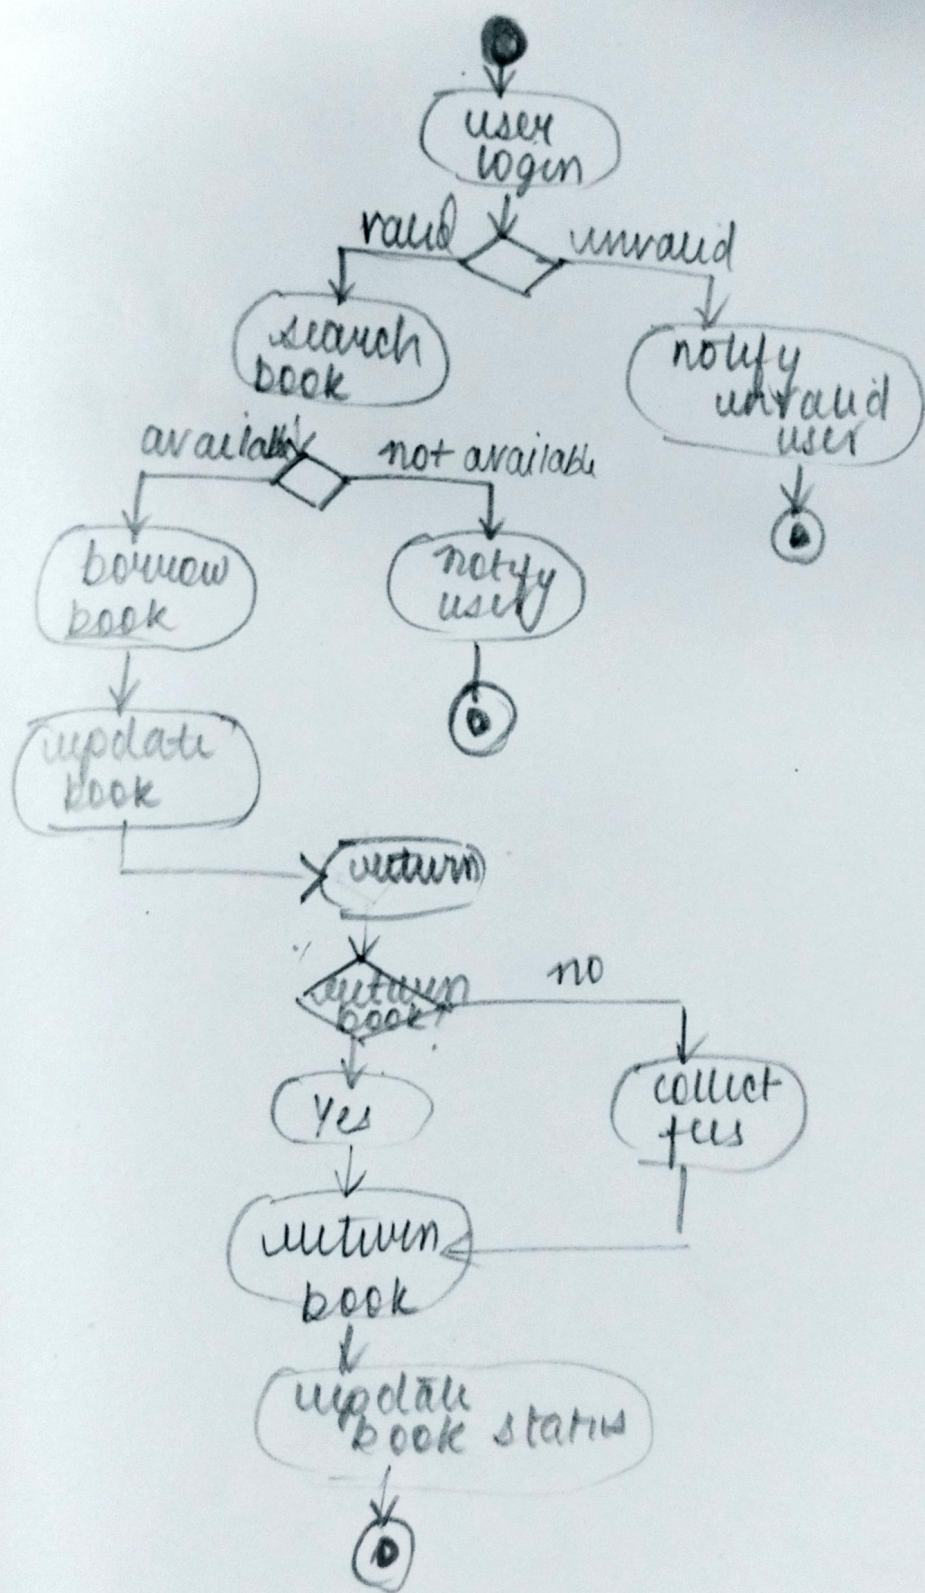 user
login
valid
unvalid
search
book
notify
unvalid
user
available
not available
borrow
book
notify
user
update
book
return
return
book?
no
Yes
collect
fees
return
book
update
book status